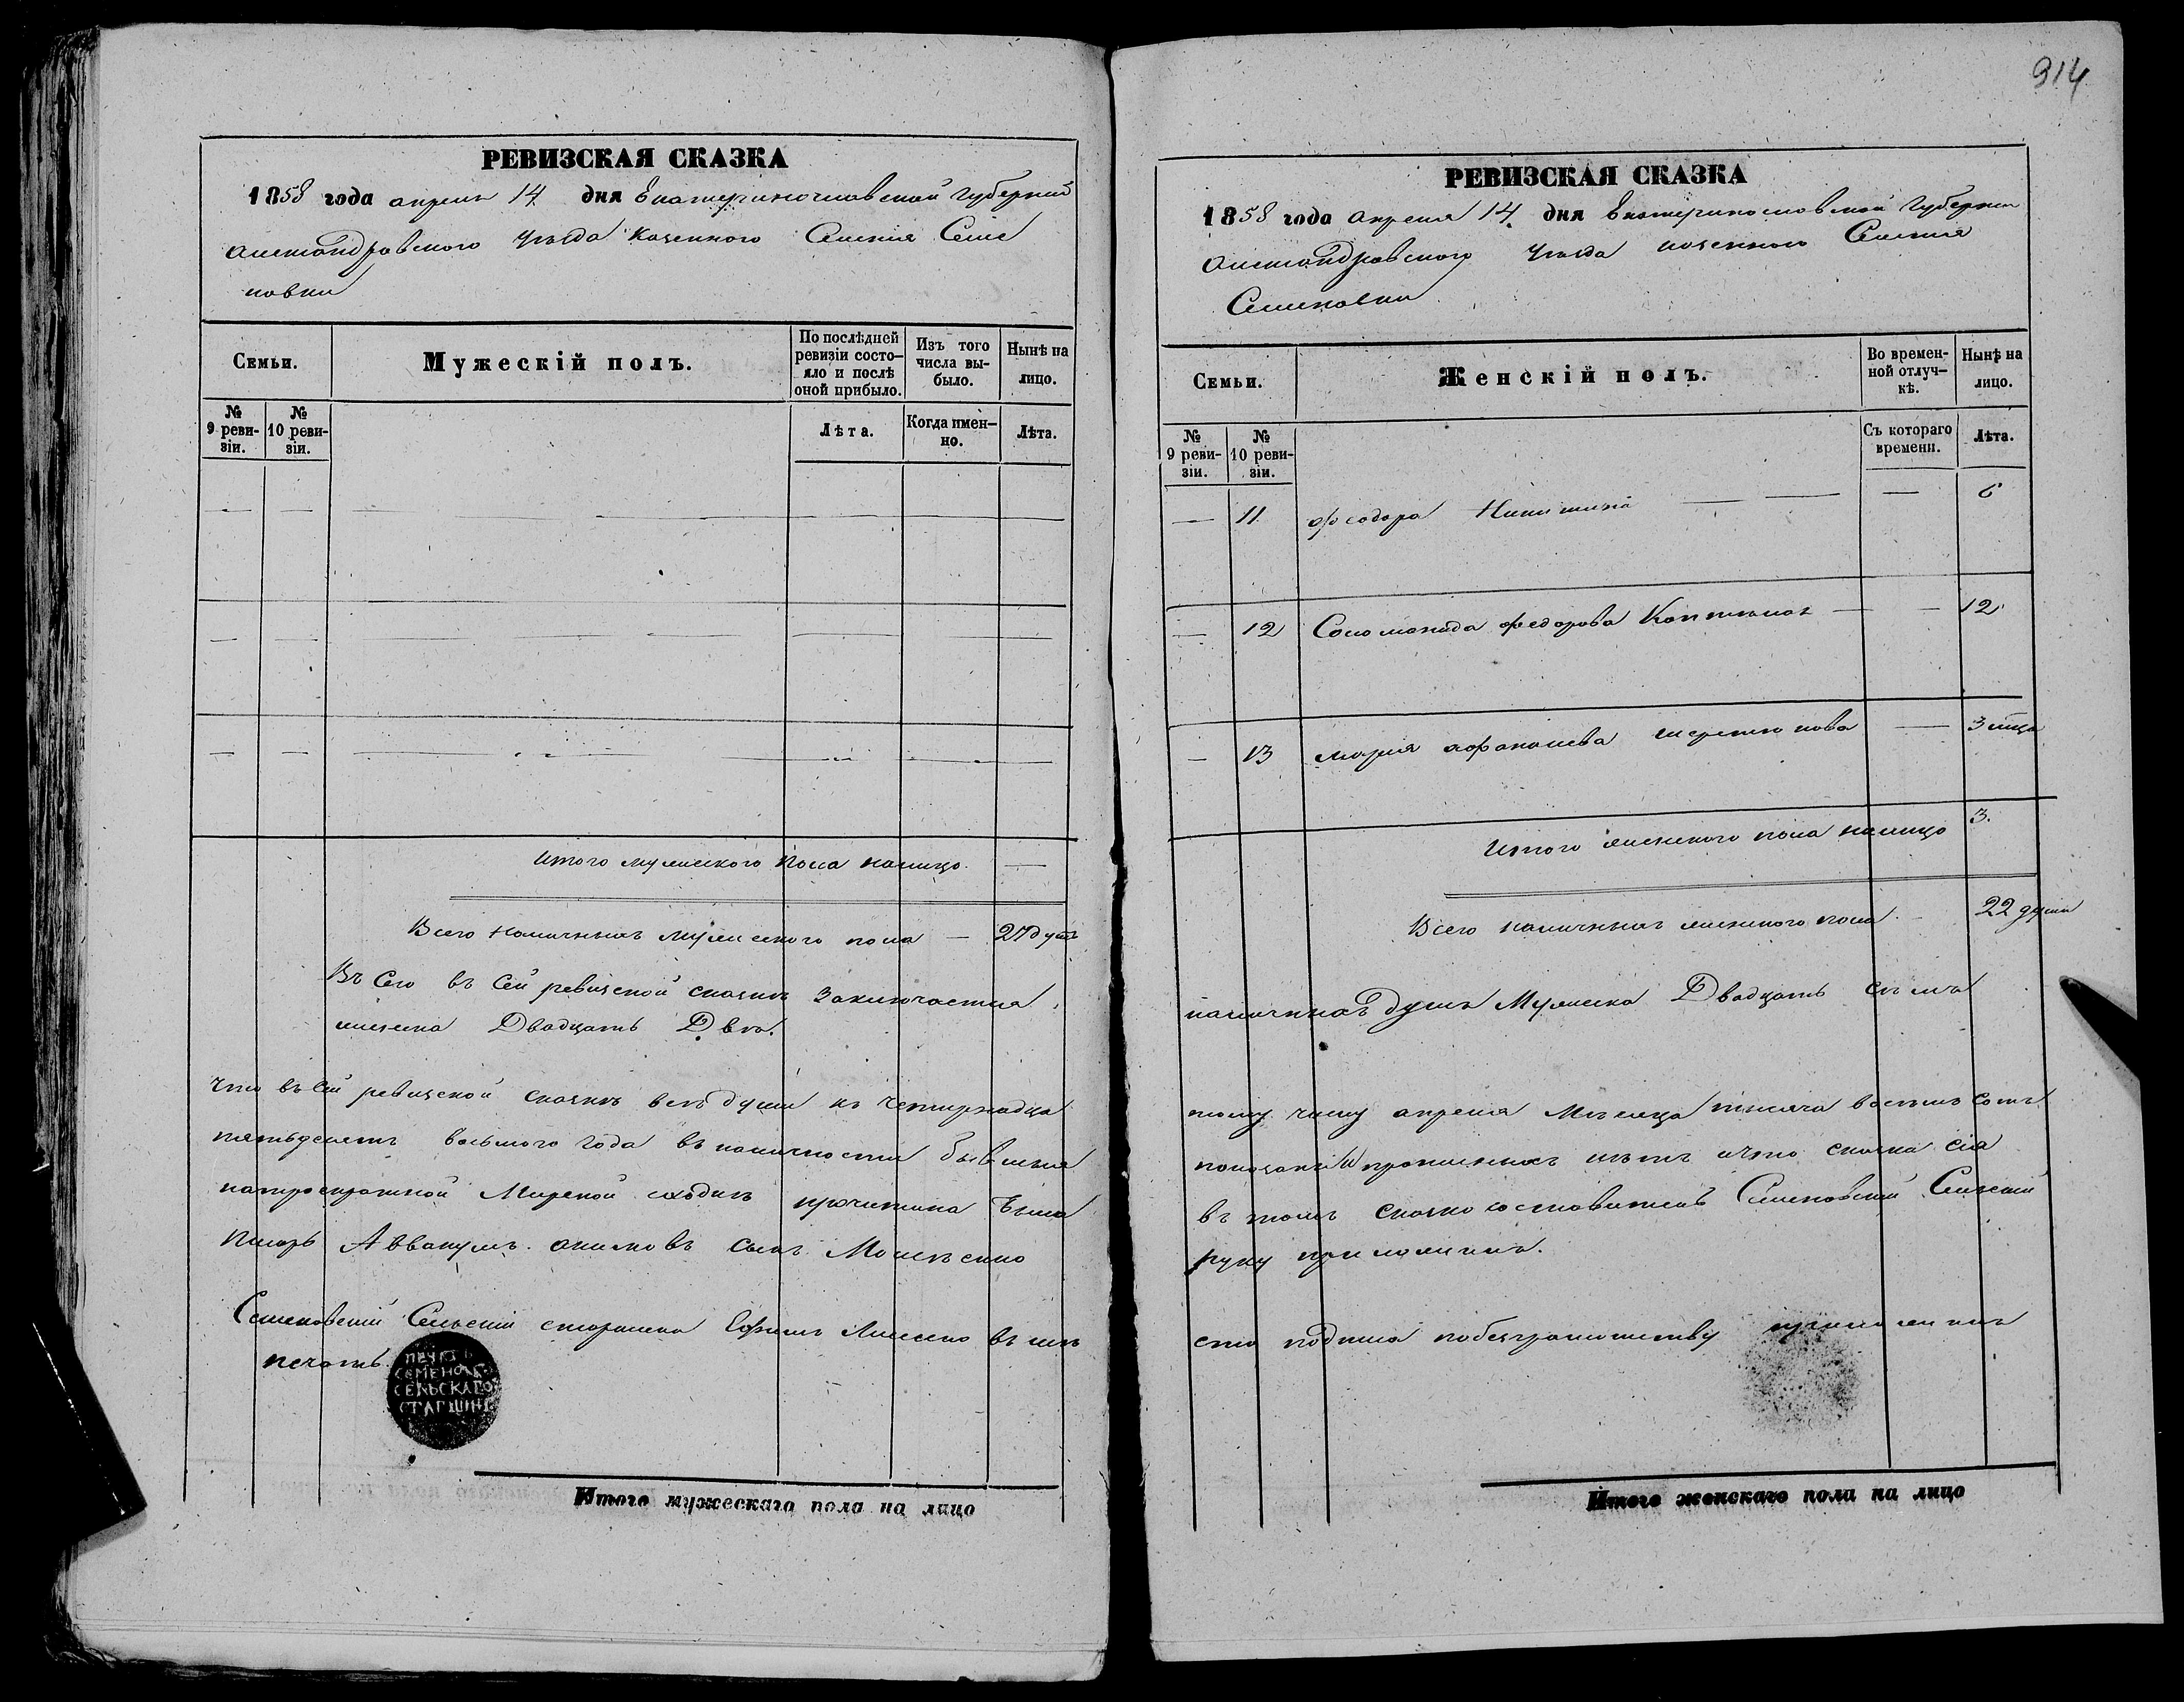 914
РЕВИЗСКАЯ СКАЗКА
1858 года апреля 14 дня Екатеринославской Губернии
Александровского Уезда Казенного Селения Семе
новки
Семьи.
Мужескій полъ.
По послѣдней ревизіи состо-яло и послѣ оной прибыло.
Изъ того числа вы-было.
Нынѣ на лицо.
№ 9 реви-зіи.
№ 10 реви-зіи.
Лѣта.
Когда имен-но.
Лѣта.
Итого мужеского пола налицо —
Всего наличныхъ мужеского пола — 27 душъ
Въ Сего въ Сей ревизской сказкѣ заключается
женска Двадцать Двѣ.
что въ Сей ревизской сказкѣ всѣ души къ четырнадца
пятьдесятъ восьмого года въ наличности бывшия
мирской сходкѣ прочитана была
Писарь Аввакумъ сынъ
Семеновский Сельский старшина Ефимъ
печать.
ПЕЧАТЬ
СЕМЕНОВС
СЕЛЬСКАГО
СТАРШИНЫ
Итого мужескаго пола на лицо
РЕВИЗСКАЯ СКАЗКА
1858 года апреля 14 дня Екатеринославской Губернии
Александровского Уезда казенного Селения
Семеновки
Семьи.
Женскій полъ.
Во времен-ной отлуч-кѣ.
Нынѣ на лицо.
№ 9 реви-зіи.
№ 10 реви-зіи.
Съ котораго времени.
Лѣта.
— 11 Феодора Никитина — — — 6
— 12 Соломанида Федорова — — 12
— 13 Мария Афанасиева — 3 мца
Итого женского пола налицо 3.
Всего наличныхъ женского пола 22 души
наличныхъ душъ Мужеска Двадцать
тому числу апреля Месяца тысяча восемь сотъ
показаны и нетъ и что сказка сія
въ томъ Семеновский Сельский
руку приложилъ.
по безграмотству приложилъ
Итого женскаго пола на лицо